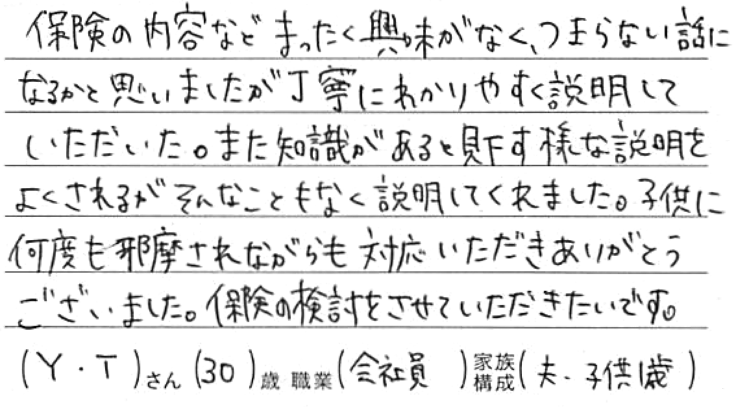 保険の内容などまったく興味がなく、つまらない話に
なるかと思いましたが丁寧にわかりやすく説明して
いただいた。また知識があると見下す様な説明を
よくされるがそんなこともなく説明してくれました。子供に
何度も邪摩されながらも対応いただきありがとう
ございました。保険の検討をさせていただきたいです。
(Y・T)さん(30)歳 職業(会社員 )家族構成(夫・子供1歳)